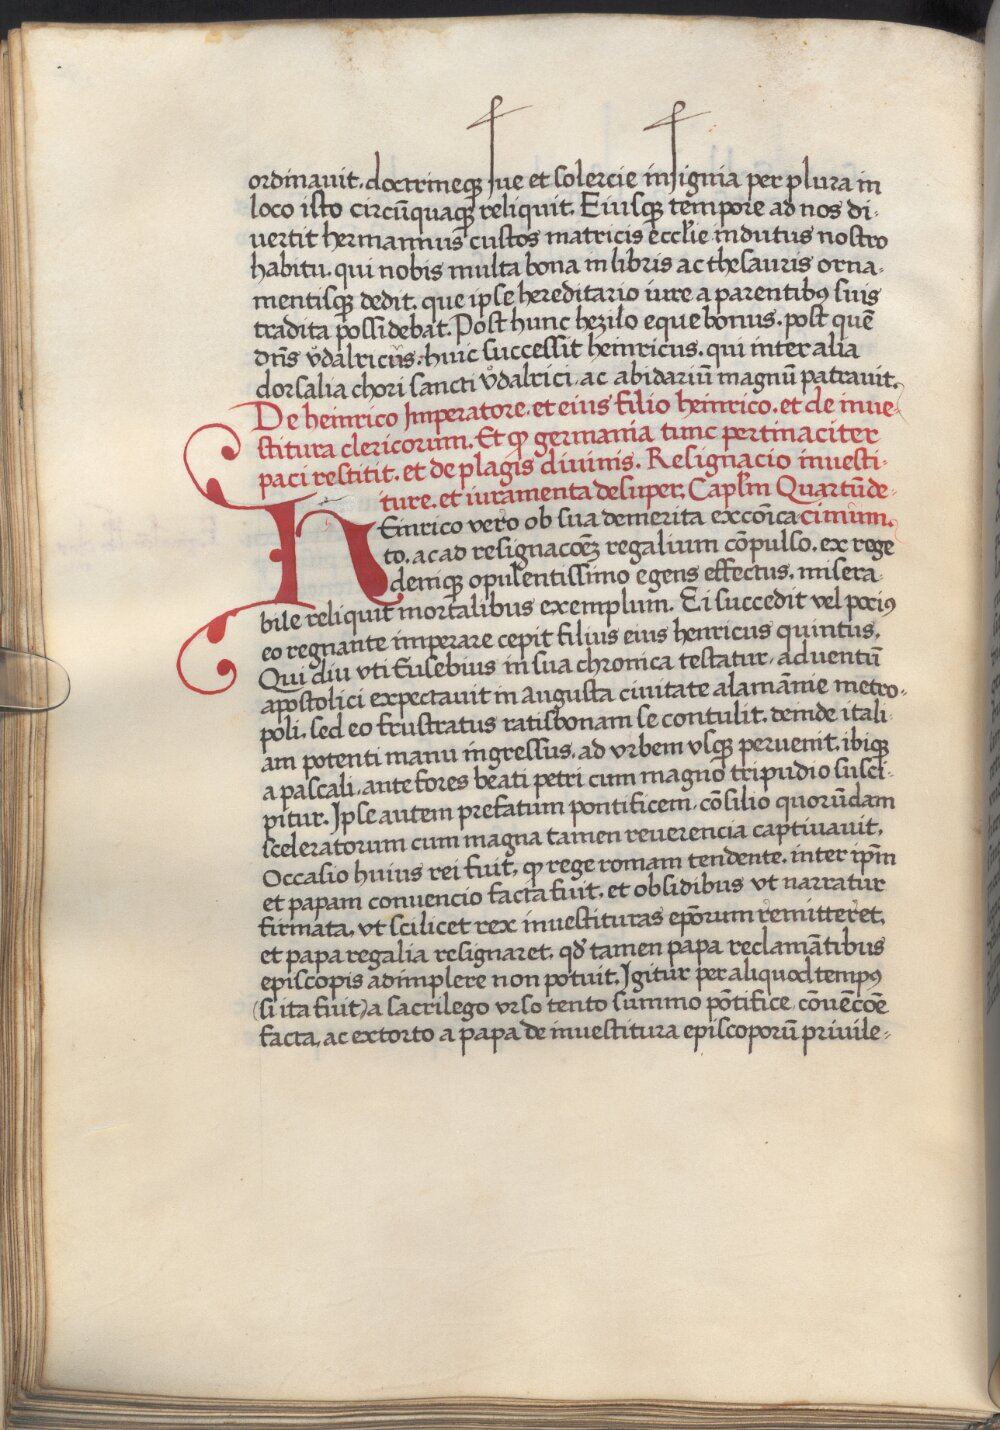 ordinauit. doctrineqꝫ sue et solercie insignia per plura in
loco isto circūquaqꝫ reliquit. Eiusqꝫ tempore ad nos di-
uertit hermannus custos matricis eccl'ie indutus nostro
habitu. qui nobis multa bona in libris ac thesauris orna-
mentisqꝫ dedit. que ipse hereditario iure a parentibꝰ suis
tradita possidebat. Post hunc hezilo eque bonus. post quē
dn̄s vͦdalricus. huic successit heinricus. qui inter alia
dorsalia chori sancti vͦdalrici, ac abidariū magnū patrauit.
De heinrico Imperatore. et eius filio heinrico. et de inue-
stitura clericorum. Et qꝫ germania tunc pertinaciter
paci restitit. et de plagis diuinis. Resignacio inuesti-
ture. et iuramenta desuper. Cap'lm Quartūde-
hEinrico vero ob sua demerita excōica cimum.
to. ac ad resignacōeꝫ regalium cōpulso. ex rege
demiqꝫ opulentissimo egens effectus. misera-
bile reliquit mortalibus exemplum. Ei succedit vel pociꝰ
eo regnante imperare cepit filius eius henricus quintus.
Qui diu vti Eusebius in sua chronica testatur. aduentū
apostolici expectauit in augusta ciuitate alamānie metro-
poli. sed eo frustratus ratisbonam se contulit. deinde itali-
am potenti manu ingressus. ad vrbem vsqꝫ peruenit. ibiqꝫ
a pascali. ante fores beati petri cum magno tripudio susci-
pitur. Ipse autem prefatum pontificem. cōsilio quorūdam
sceleratorum cum magna tamen reuerencia captiuauit.
Occasio huius rei fuit, qꝫ rege romam tendente. inter ip̄m
et papam conuencio facta fuit. et obsidibus vt narratur
firmata. vt scilicet rex inuestituras ep̄orum remitteret.
et papa regalia resignaret. qd' tamen papa reclamātibus
episcopis adimplere non potuit. Igitur per aliquod tempꝰ
(si ita fuit) a sacrilego vrso tento summo pōtifice, cōuēcōe
facta, ac extorto a papa de inuestitura episcoporū priuile-